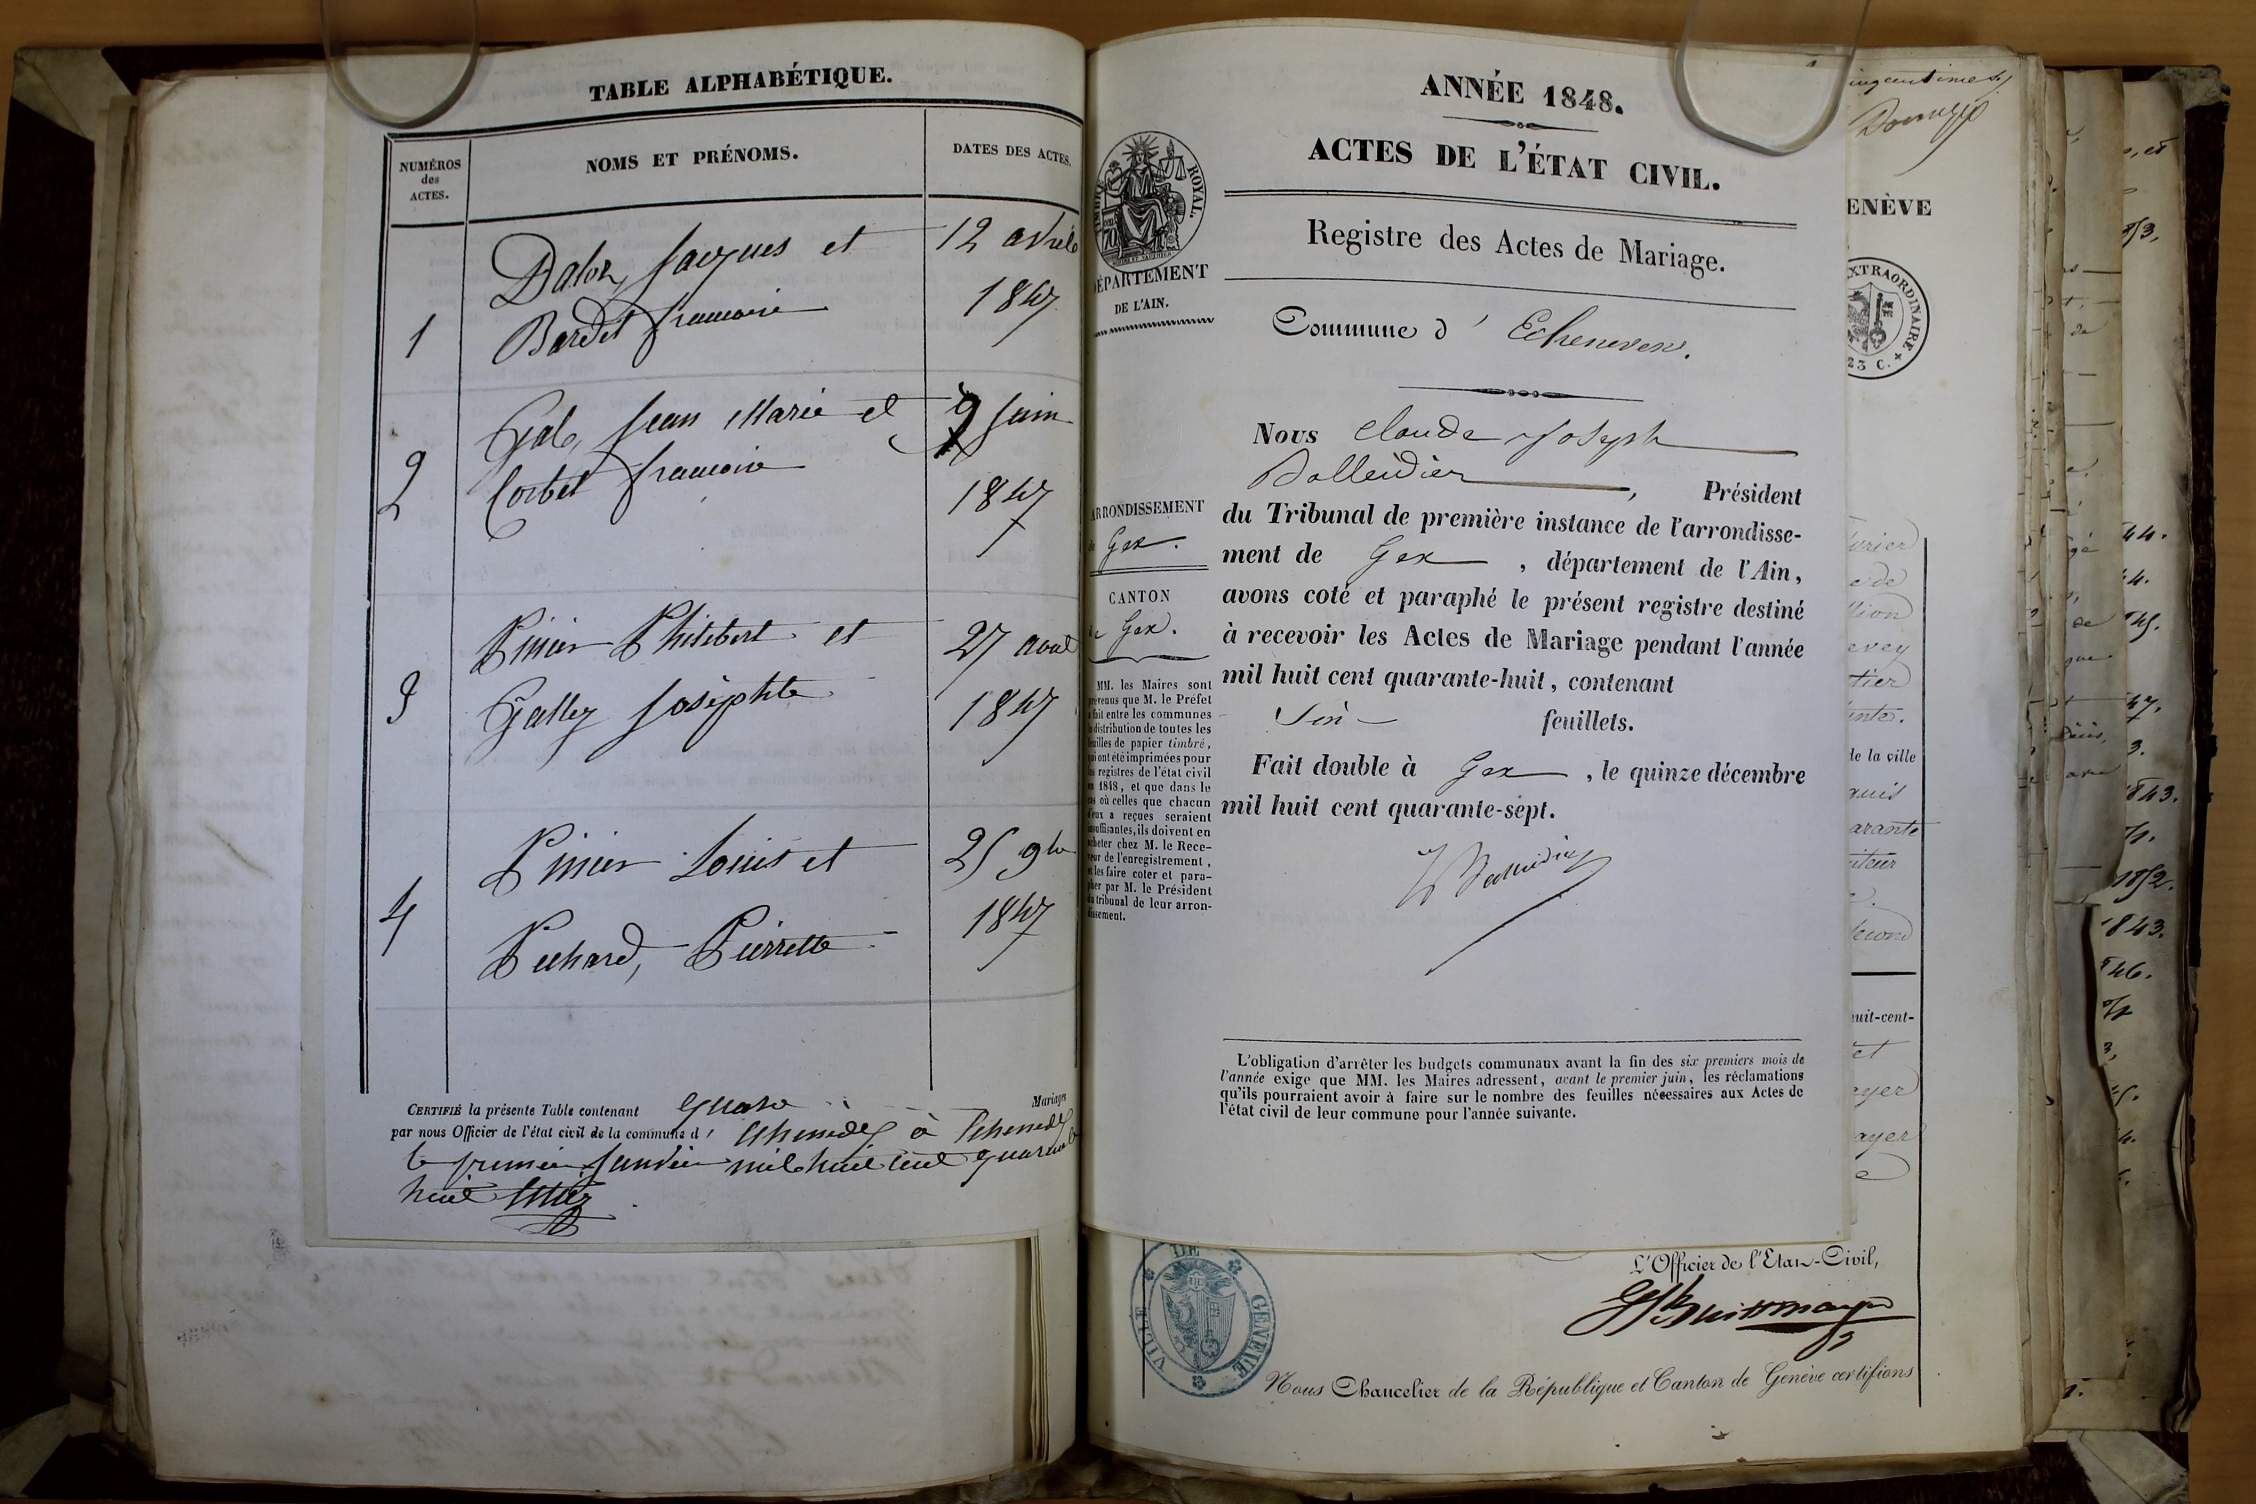 TABLE ALPHABÉTIQUE.
NUMÉROS
des
ACTES.
NOMS ET PRÉNOMS.
DATES DES ACTES.
1
Dalon, Jacques et
Bardet francoise
12 avril
1847
2
Gal, Jean Marie et
Corbet francoise
9 Juin
1847
3
Pinier Philibert et
Galley Joséphte
27 aout
1847
4
Pinier Louis et
Pechard, Pierrette
25 9bre
1847
CERTIFIÉ la présente Table contenant quatre Mariages
par nous Officier de l'état civil de la commune d' à
le premier Janvier mil huit cent quarante
huit
ANNÉE 1848.
ACTES DE L'ÉTAT CIVIL.
Registre des Actes de Mariage.
TIMBRE ROYAL.
70
DÉPARTEMENT
DE L'AIN.
Commune d' Echenevex.
Nous Claude Joseph
, Président
du Tribunal de première instance de l'arrondisse-
ment de Gex , département de l'Ain,
avons coté et paraphé le présent registre destiné
à recevoir les Actes de Mariage pendant l'année
mil huit cent quarante-huit, contenant
Six feuillets.
Fait double à Gex , le quinze décembre
mil huit cent quarante-sept.
ARRONDISSEMENT
de Gex.
CANTON
de Gex.
MM. les Maires sont
prévenus que M. le Préfet
a fait entre les communes
la distribution de toutes les
feuilles de papier timbré,
qui ont été imprimées pour
les registres de l'état civil
en 1848, et que dans le
cas où celles que chacun
d'eux a reçues seraient
insuffisantes, ils doivent en
acheter chez M. le Rece-
veur de l'enregistrement,
et les faire coter et para-
pher par M. le Président
du tribunal de leur arron-
dissement.
L'obligation d'arrêter les budgets communaux avant la fin des six premiers mois de
l'année exige que MM. les Maires adressent, avant le premier juin, les réclamations
qu'ils pourraient avoir à faire sur le nombre des feuilles nécessaires aux Actes de
l'état civil de leur commune pour l'année suivante.
ENÈVE
EXTRAORDINAIRE
23 C.
de la ville
arante
huit-cent-
L'Officier de l'Etat-Civil,
VILLE GENEVE
Nous Chancelier de la République et Canton de Genève certifions